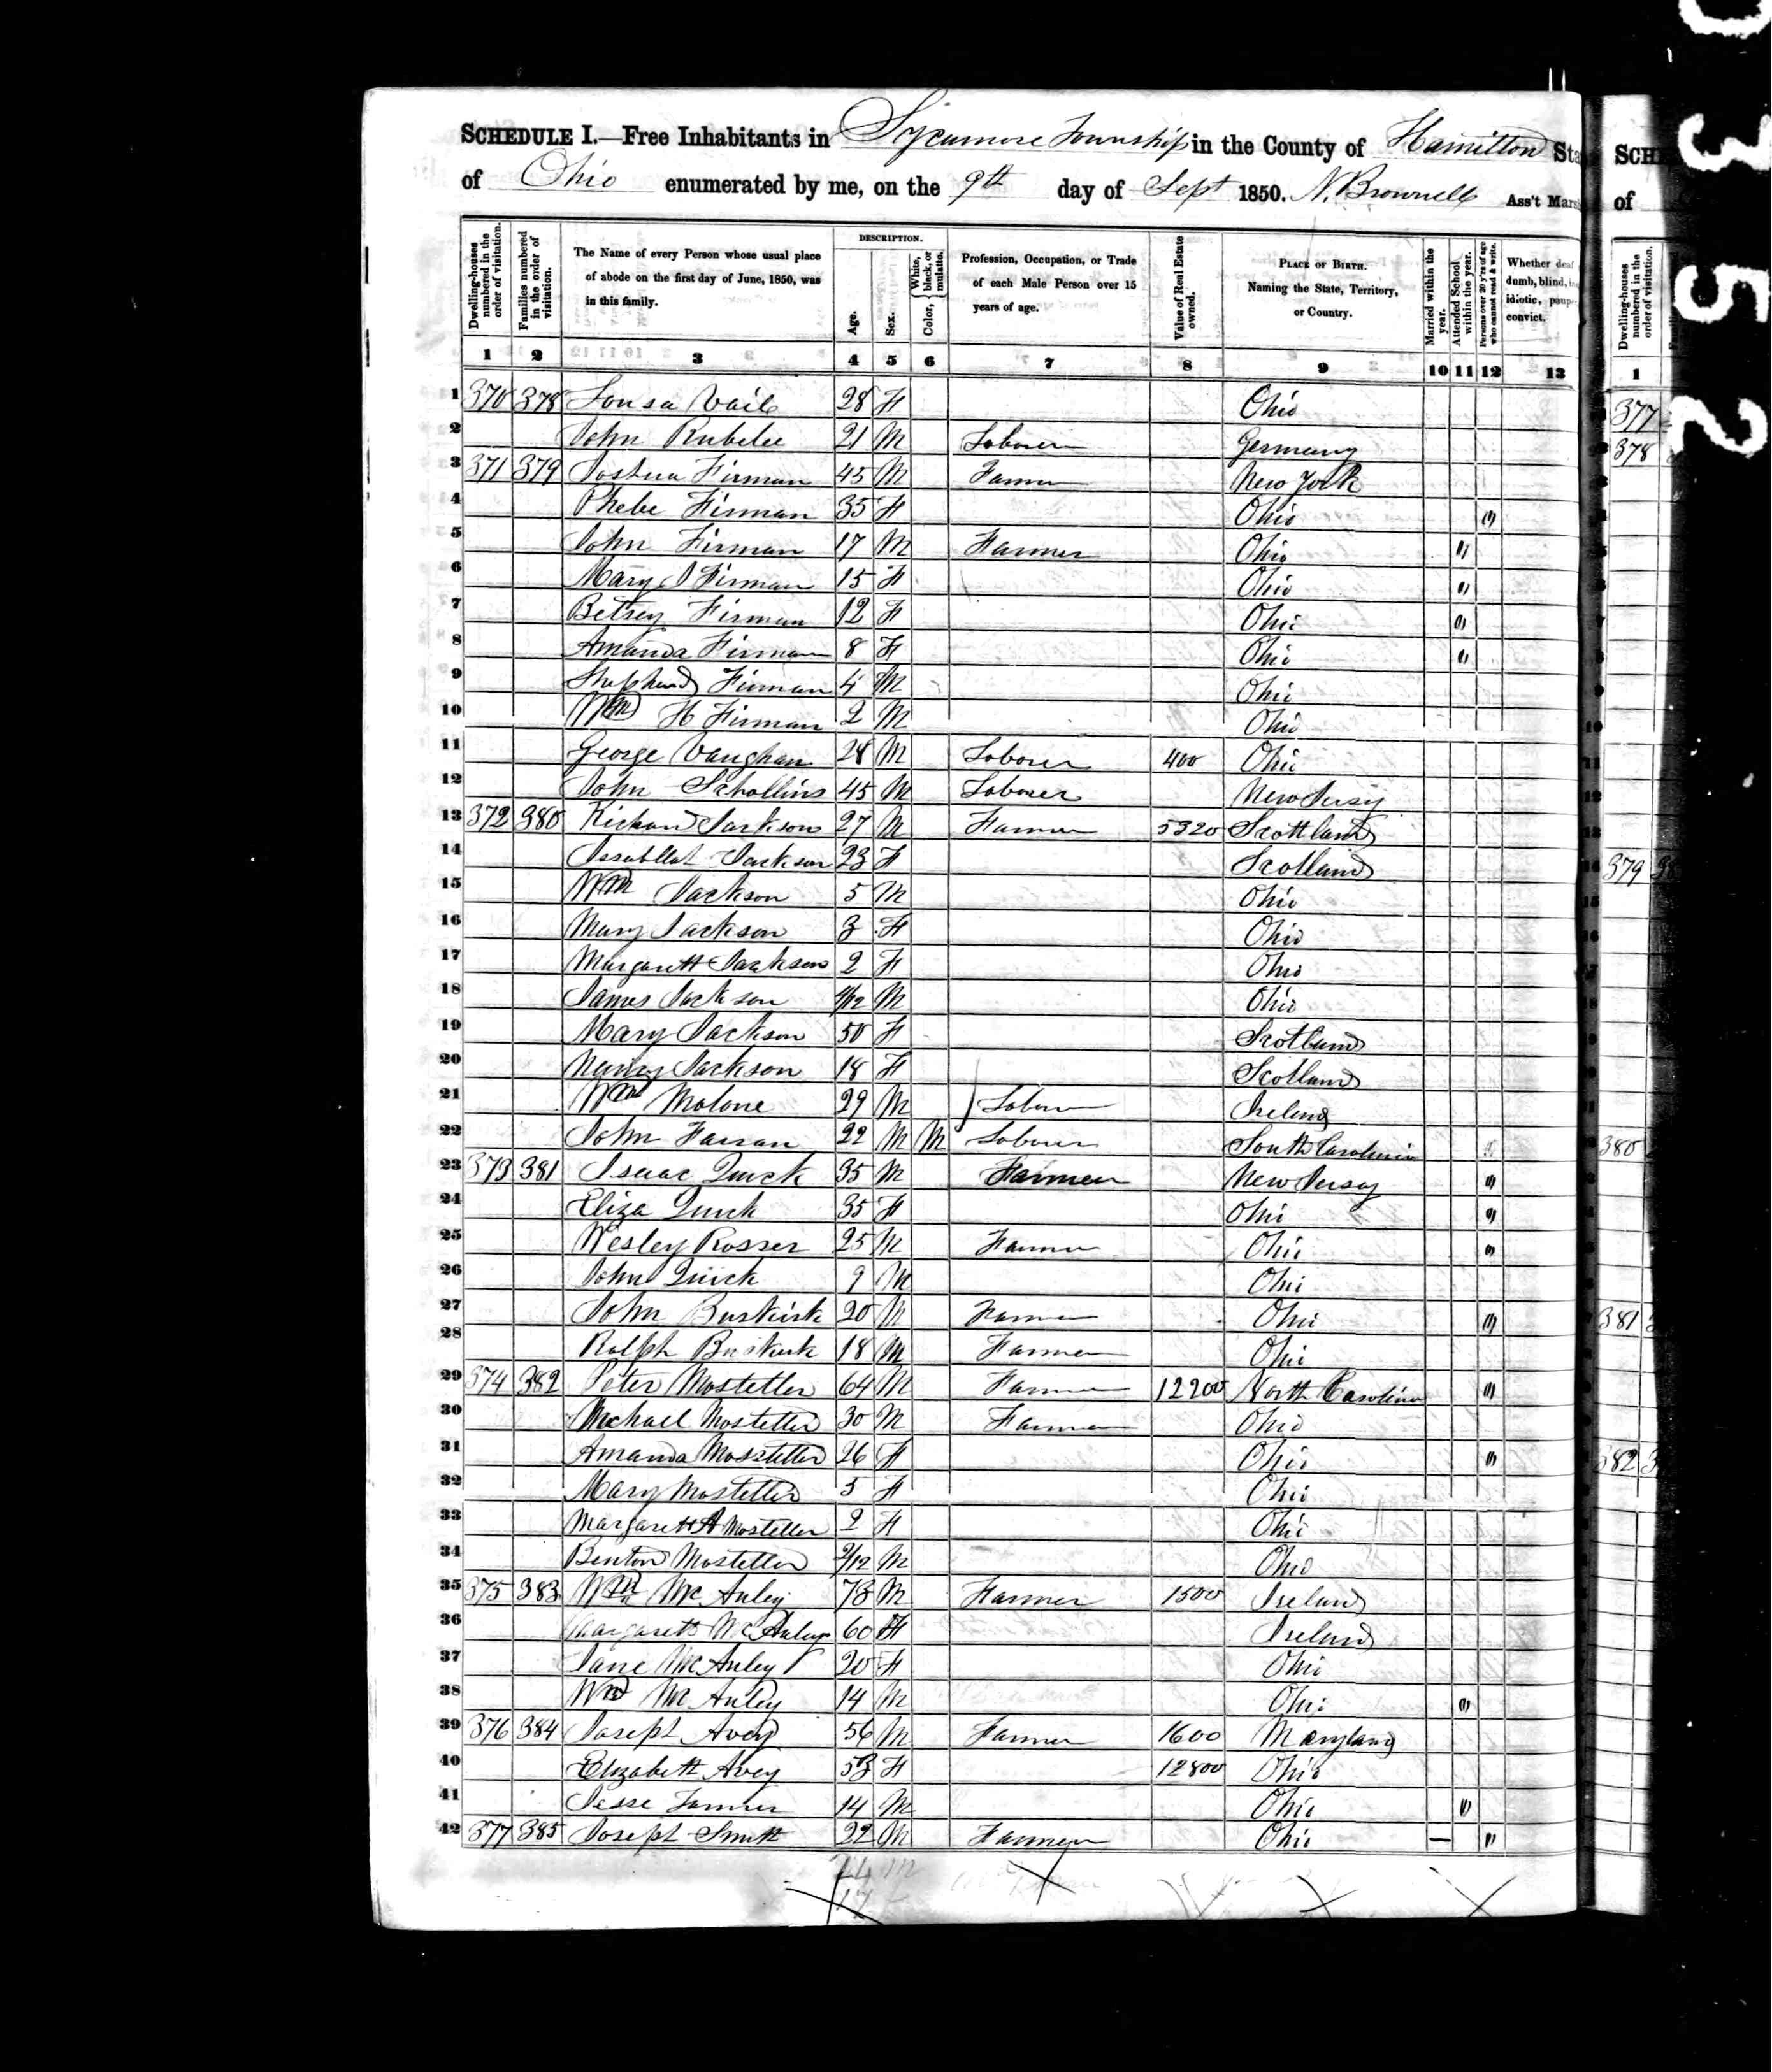 SCHEDULE I.—Free Inhabitants in Sycamore Township in the County of Hamilton Sta
of Ohio enumerated by me, on the 9th day of Sept 1850. N. Brownell Ass't Mars
Dwelling-houses numbered in the order of visitation. Families numbered in the order of visitation. The Name of every Person whose usual place of abode on the first day of June, 1850, was in this family. DESCRIPTION. Age. Sex. Color, White, black, or mulatto. Profession, Occupation, or Trade of each Male Person over 15 years of age. Value of Real Estate owned. PLACE OF BIRTH. Naming the State, Territory, or Country. Married within the year. Attended School within the year. Persons over 20 y'rs of age who cannot read & write. Whether deaf dumb, blind, idiotic, paup convict.
1 2 3 4 5 6 7 8 9 10 11 12 13
1 370 378 Lousa Vail 28 F Ohio
2 John Rubelee 21 M Laborer Germany
3 371 379 Joshua Firman 45 M Farmer New York
4 Phebe Firman 35 F Ohio "
5 John Firman 17 M Farmer Ohio "
6 Mary J Firman 15 F Ohio "
7 Betsey Firman 12 F Ohio "
8 Amanda Firman 8 F Ohio "
9 Shephard Firman 4 M Ohio
10 Wm H Firman 2 M Ohio
11 George Vaughan 28 M Laborer 400 Ohio
12 John Schollins 45 M Laborer New Jersy
13 372 380 Richard Jackson 27 M Farmer 5320 Scottland
14 Jackson 23 F Scotland
15 Wm Jackson 5 M Ohio
16 Mary Jackson 3 F Ohio
17 Margarett Jackson 2 F Ohio
18 James Jackson /12 M Ohio
19 Mary Jackson 50 F Scotland
20 Nancy Jackson 18 F Scotland
21 Wm Malone 29 M Laborer Ireland
22 John Farran 22 M M Laborer South Carolina "
23 373 381 Isaac Quick 35 M Farmer New Jersey "
24 Eliza Quick 35 F Ohio "
25 Wesley Rosser 25 M Farmer Ohio "
26 John Quick 9 M Ohio
27 John Buskirk 20 M Farmer Ohio "
28 Ralph Buskirk 18 M Farmer Ohio
29 374 382 Peter Mostetler 64 M Farmer 12200 North Carolina "
30 Michael Mostetler 30 M Farmer Ohio
31 Amanda Mostetler 26 F Ohio "
32 Mary Mostetler 3 F Ohio
33 Margarett A Mostetler 2 F Ohio
34 Benton Mostetler /12 M Ohio
35 375 383 Wm McAuley 73 M Farmer 1500 Ireland
36 Margarett McAuley 60 F Ireland
37 Jane McAuley 20 F Ohio
38 Wm McAuley 14 M Ohio "
39 376 384 Joseph Avey 56 M Farmer 1600 Maryland
40 Elizabeth Avey 53 F 12800 Ohio
41 Jesse 14 M Ohio "
42 377 385 Joseph Smith 22 M Farmer Ohio — "
SCH
of
Dwelling-houses numbered in the order of visitation.
1
377
378
379
380
381
382
352